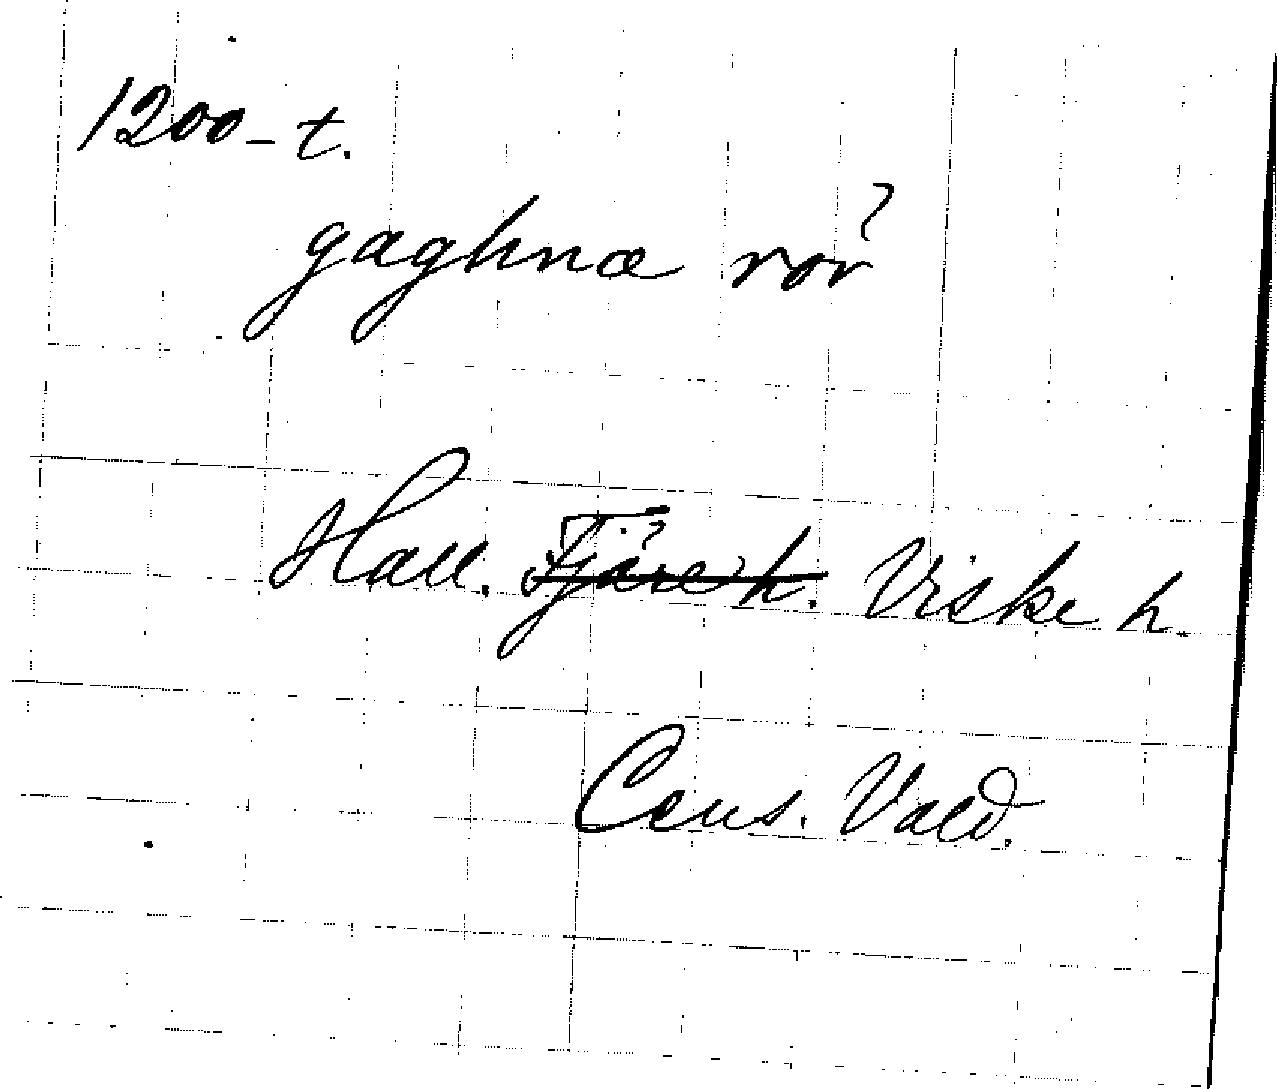 1200-t.
gaghnæ rør
Hall. Fjäre h. Viske h.
Cens. Vald.